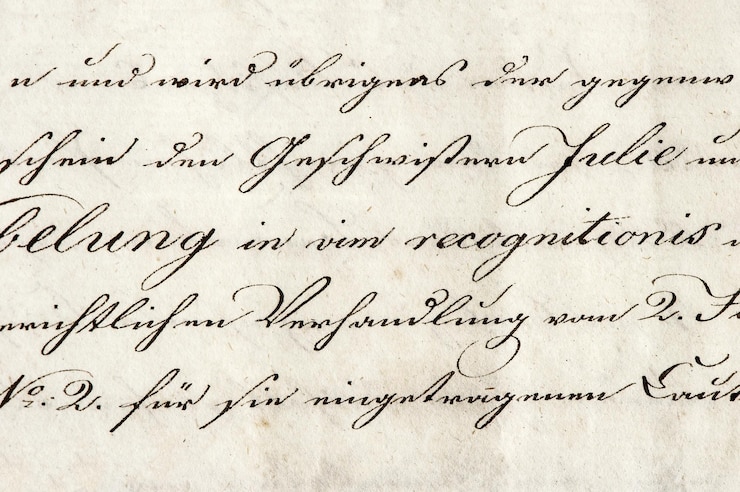 n und wird übrigens der gegenw
schein den Geschwistern Julie un
belung in vim recognitionis
erichtlichen Verhandlung vom 2. Fe
No: 2. für sie eingetragenen Caut